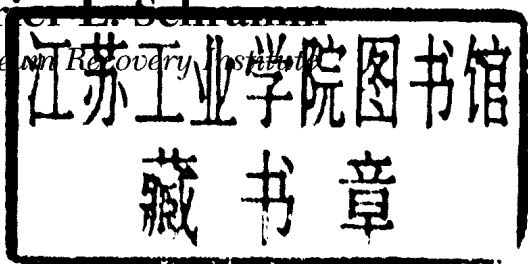 L. Schramm
Recovery Institute
江苏工业学院图书馆
藏书章